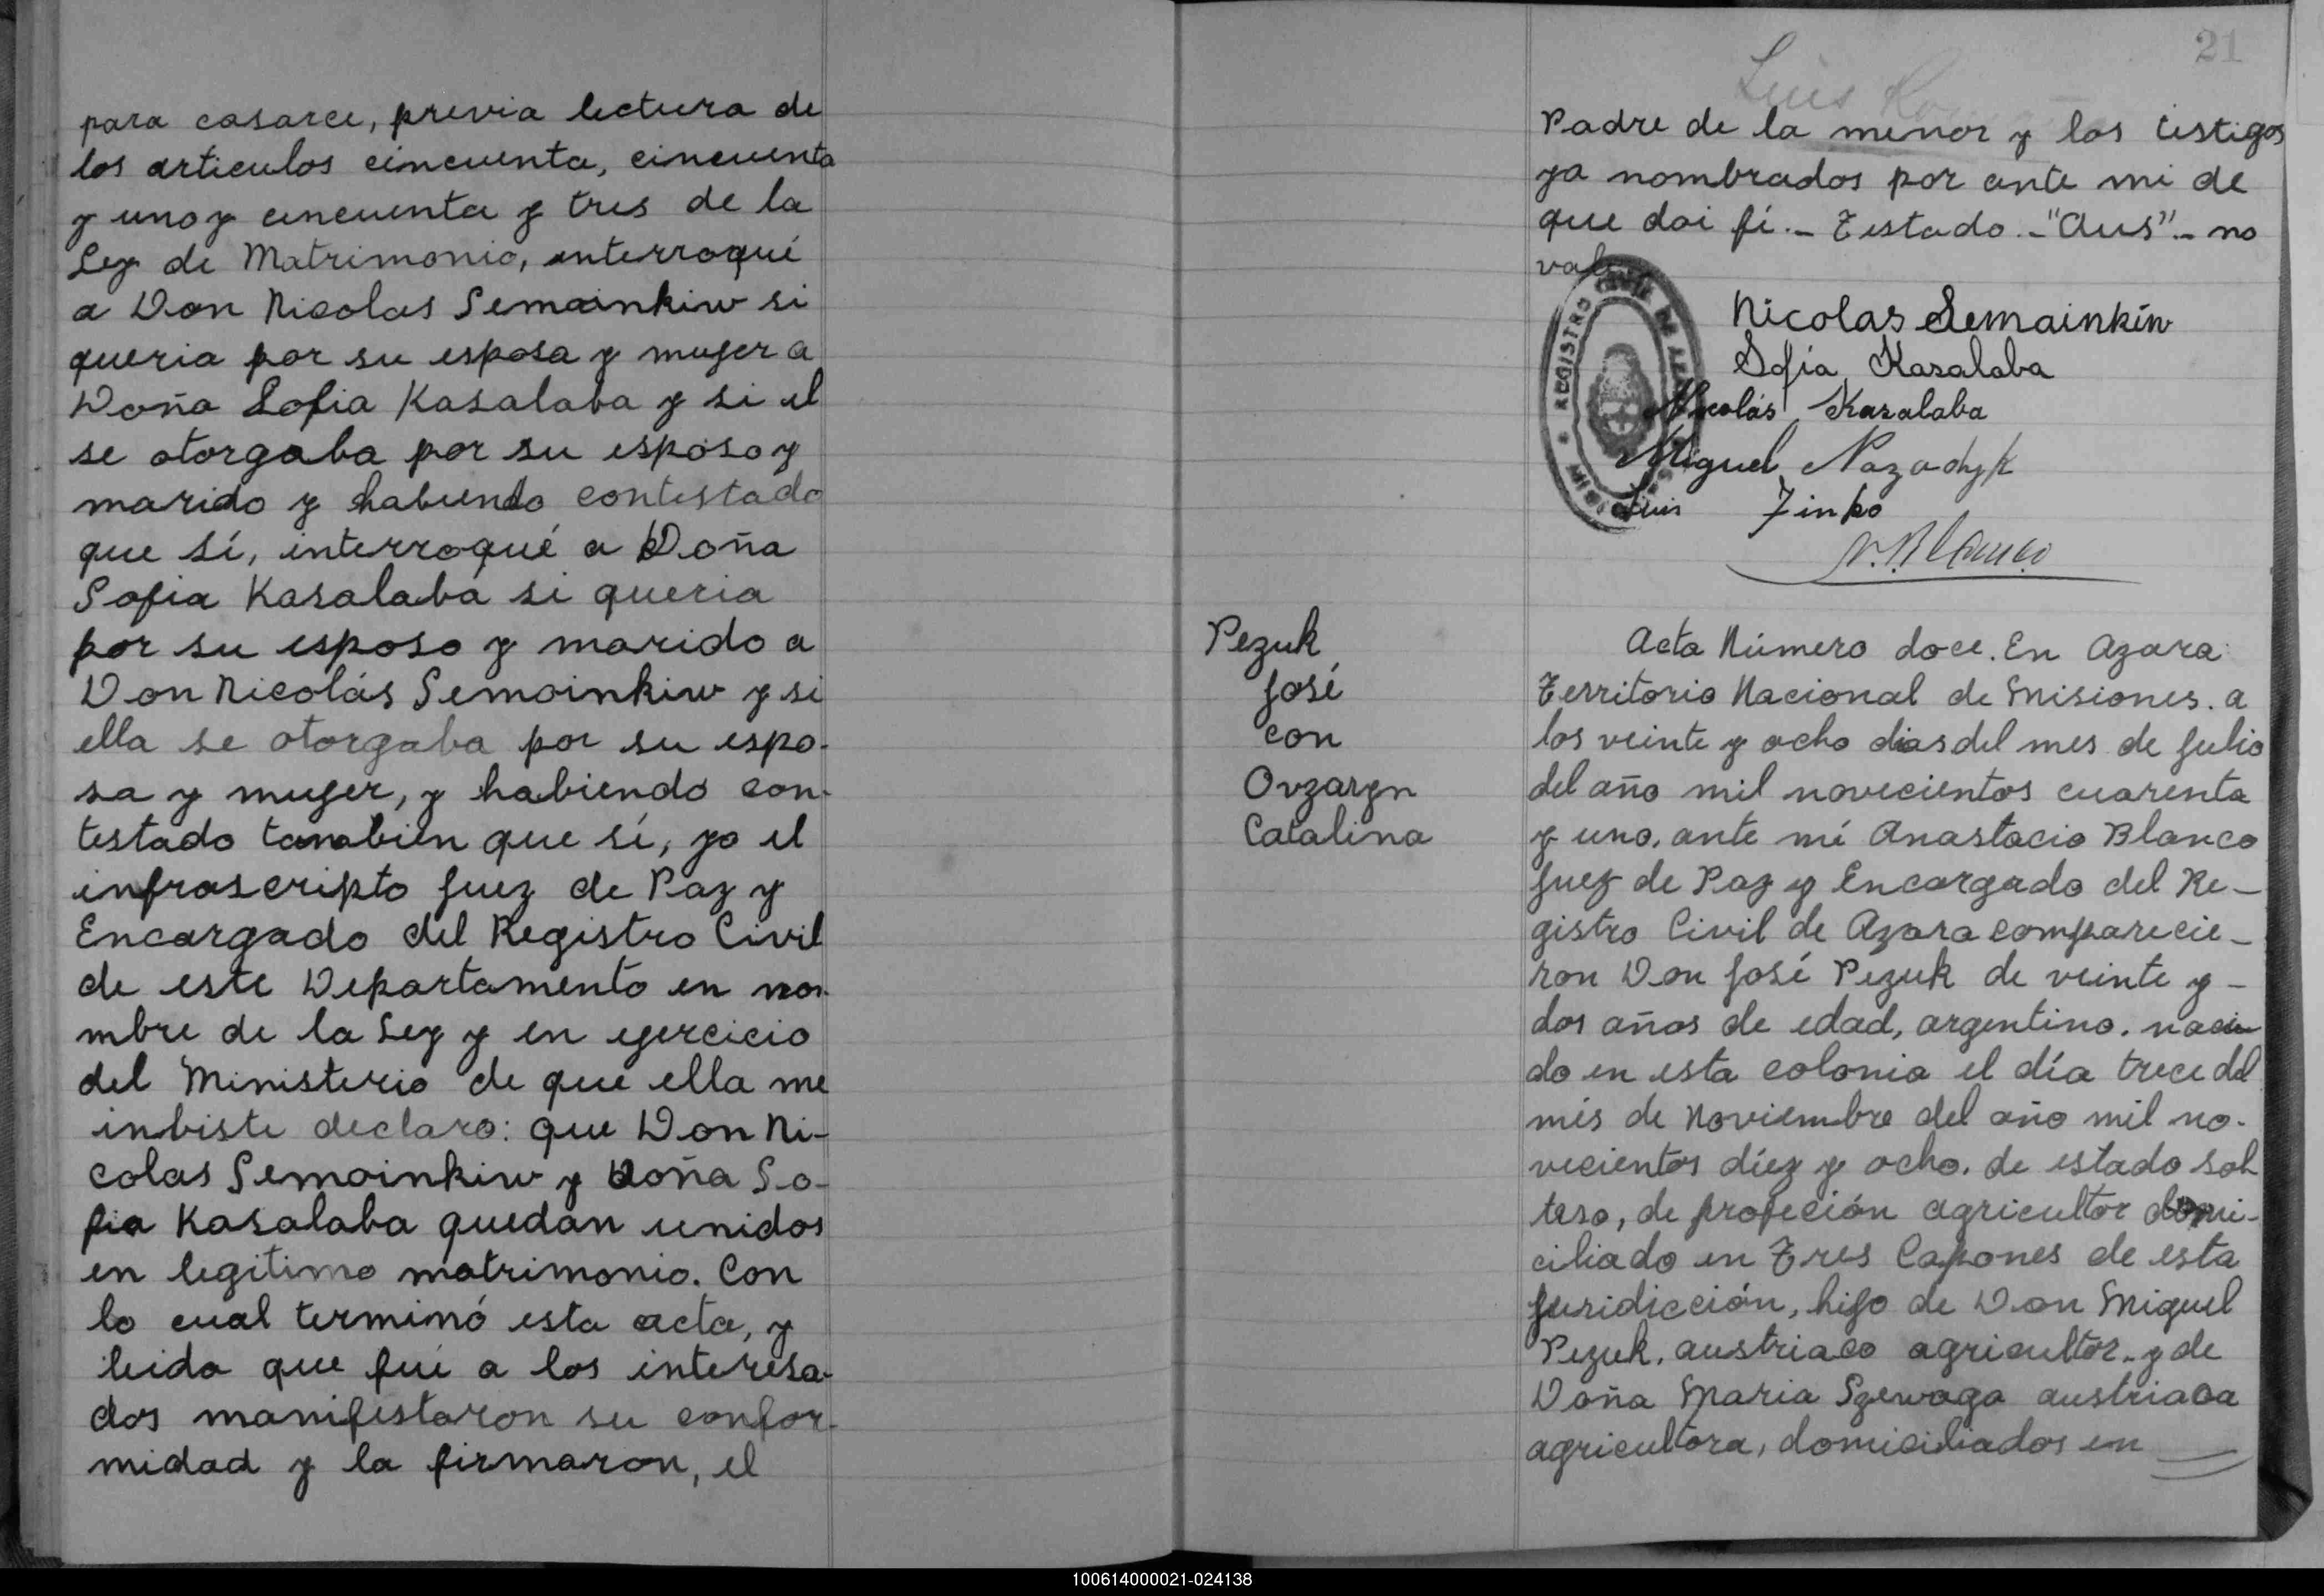 para casarce, previa lectura de
los articulos cincuenta, cincuenta
y uno y cincuenta y tres de la
Ley de Matrimonio, interroqué
a Don Nicolas Semainkiw si
queria por su esposa y mujer a
Doña Sofia Kasalaba y si el
se otorgaba por su esposo y
marido y habiendo contestado
que sí, interroqué a Doña
Sofia Kasalaba si queria
por su esposo y marido a
Don Nicolás Semainkiw y si
ella se otorgaba por su espo-
sa y mujer, y habiendo con-
testado tambien que sí, yo el
infrascripto Juez de Paz y
Encargado del Registro Civil
de este Departamento en nom-
mbre de la Ley y en ejercicio
del Ministerio de que ella me
inbiste declaro: que Don Ni-
colas Semainkiw y Doña So-
fia Kasalaba quedan unidos
en legitimo matrimonio. Con
lo cual terminó esta acta, y
leida que fué a los interesa-
dos manifestaron su confor-
midad y la firmaron, el
21
Luis
Padre de la menor y los testigos
ya nombrados por ante mi de
que doi fé.- Testado.-"Aus"- no
vale
REGISTRO CIVIL DE
Nicolas Semainkiw
Sofía Kasalaba
Nicolás Kasalaba
Miguel Nazadyk
Luis Zinko
A. Blanco
Pezuk
José
con
Ovzaryn
Catalina
Acta Número doce. En Azara
Territorio Nacional de Misiones. a
los veinte y ocho dias del mes de Julio
del año mil novecientos cuarenta
y uno, ante mí Anastacio Blanco
Juez de Paz y Encargado del Re-
gistro Civil de Azara comparecie-
ron Don José Pezuk de veinte y-
dos años de edad, argentino. naci
do en esta colonia el día trece del
més de Noviembre del año mil no-
vecientos diez y ocho. de estado sol
tero, de profeción agricultor domi-
ciliado en Tres Capones de esta
Juridicción, hijo de Don Miguel
Pezuk. austriaco agricultor.. y de
Doña Maria Szewaga austriaca
agricultora, domiciliados en
100614000021-024138